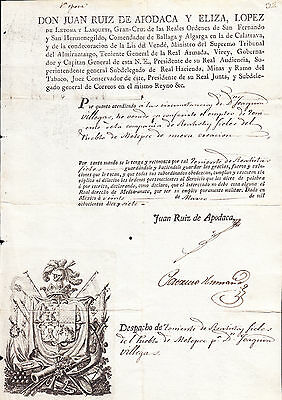 DON JUAN RUIZ DE APODACA Y ELIZA, LOPEZ
DE LETONA Y LASQUETI, Gran-Cruz de las Reales Ordenes de San Fernando
y San Hermenegildo, Comendador de Ballaga y Algarga en la de Calatrava,
y de la condecoracion de la Lis del Vendé, Ministro del Supremo Tribunal
del Almirantazgo, Teniente General de la Real Armada, Virey, Goberna-
dor y Capitan General de esta N. E., Presidente de su Real Audiencia, Su-
perintendente general Subdelegado de Real Hacienda, Minas y Ramo del
Tabaco, Juez Conservador de este, Presidente de su Real Junta, y Subdele-
gado general de Correos en el mismo Reyno &c.
Por quanto atendiendo a las circunstancias de D. Joaquin
Villegas, he venido en conferirle el empleo de
del
Pueblo de de nueva creacion
Por tanto mando se le tenga y reconozca por tal Teniente de Realistas
fieles guardándole y haciéndole guardar las gracias, fueros y exên-
ciones que le tocan, y que todas sus subordinados obedezcan, cumplan y executen sin
réplica ni dilacion las órdenes pertenecientes al Servicio que les diere de palabra
ó por escrito, declarando, como declaro, que el interesado no debe causar alguno
Real derecho de Media-anata, por ser su empleo puramente militar. Dado en
México á veinte de Marzo de mil
ochocientos diez y siete
Juan Ruiz de Apodaca
Despacho de Teniente de Realistas fieles
del Pueblo de pa. Dn. Joaquin
Villegas